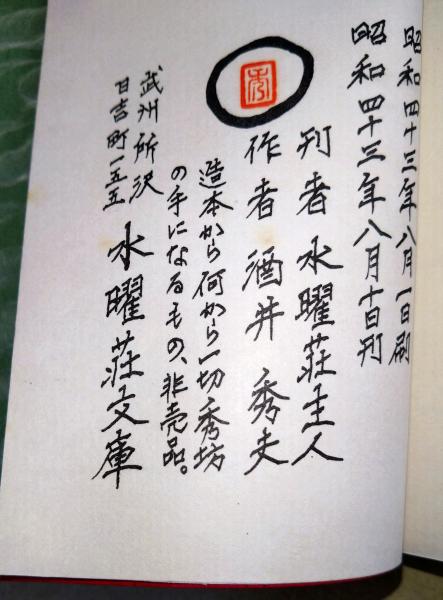 昭和四十三年八月一日刷
昭和四十三年八月十日刊
刊者 水曜荘主人
作者 酒井秀夫
造本から何から一切秀坊
の手になるもの、非売品。
武州所沢
日吉町一五五
水曜荘文庫